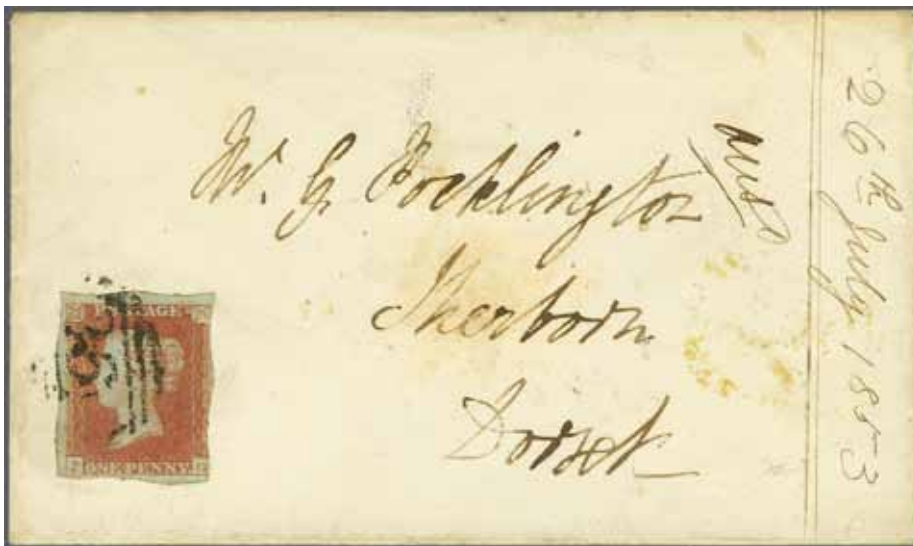 Mr. G. Pocklington
Sherborn
Dorset
ansd
26th July 1853
POSTAGE
ONE PENNY